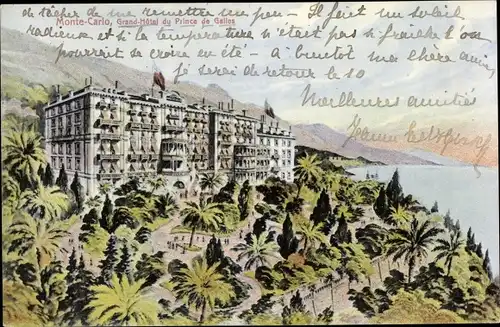 de tâcher de me remettre un peu — Il fait un soleil
Monte-Carlo, Grand-Hôtel du Prince de Galles
radieux et si la température n'était pas si fraîche l'on
pourrait se croire en été — A bientôt ma chère amie,
je serai de retour le 10
Meilleures amitiés